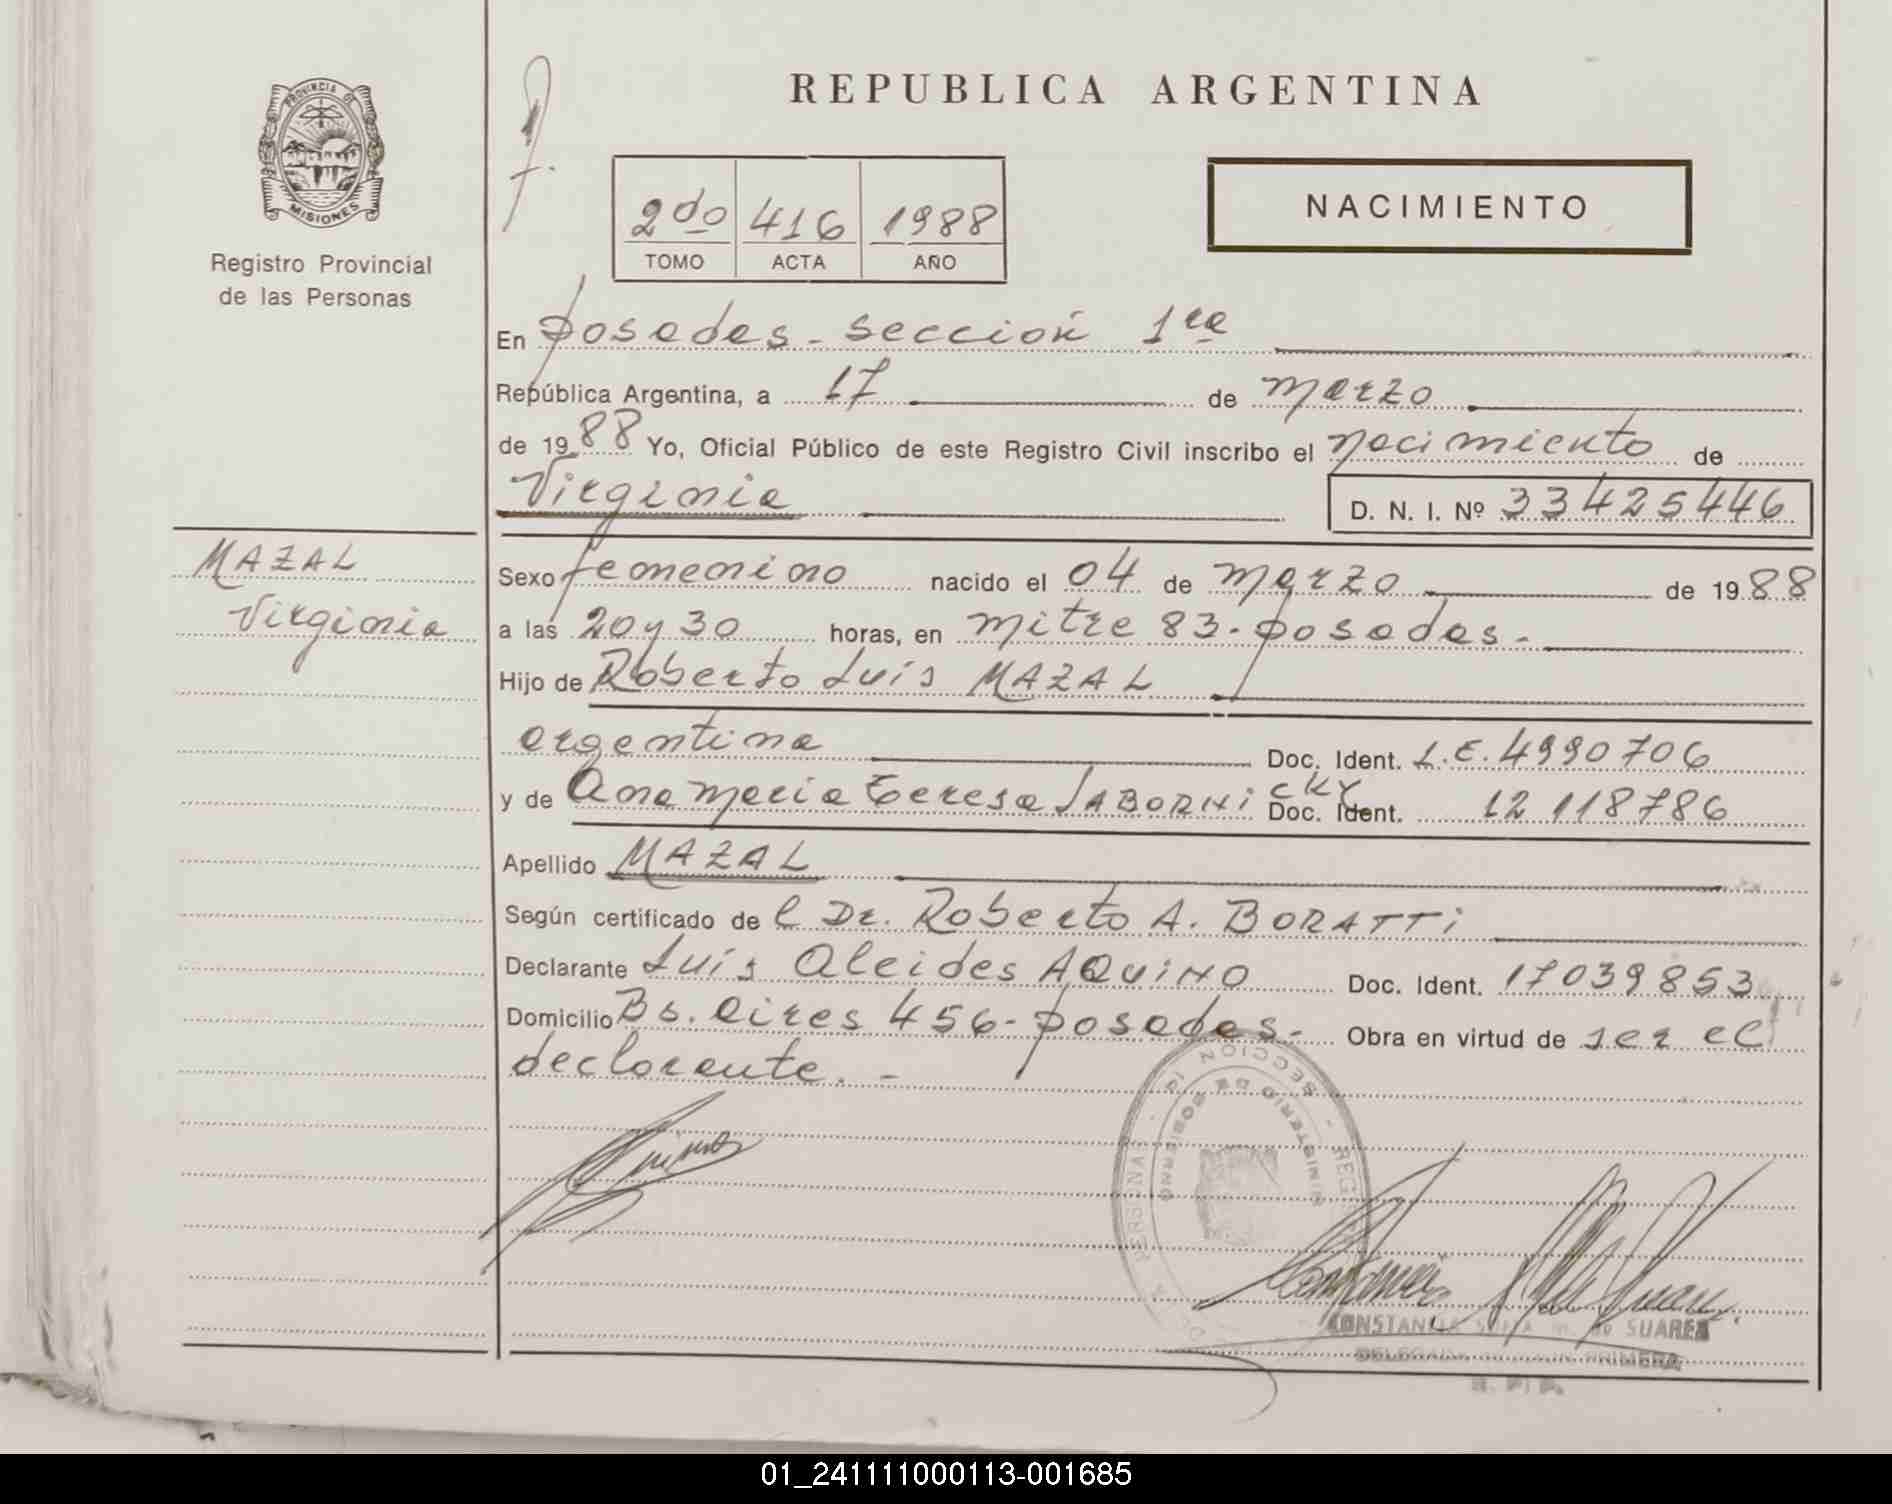 PROVINCIA DE
MISIONES
Registro Provincial
de las Personas
REPUBLICA ARGENTINA
2do 416 1988
TOMO ACTA AÑO
NACIMIENTO
En posadas - sección 1ra
República Argentina, a 17 de marzo
de 1988 Yo, Oficial Público de este Registro Civil inscribo el nacimiento de
Virginia D. N. I. Nº 33425446
MAZAL
Virginia
Sexo femenino nacido el 04 de marzo de 1988
a las 20 y 30 horas, en mitre 83 - posadas -
Hijo de Roberto Luis MAZAL
argentina Doc. Ident. L.E. 4990706
y de Ana Maria Teresa SABORNICKY Doc. Ident. 12 118786
Apellido MAZAL
Según certificado de l Dr. Roberto A. BORATTI
Declarante Luis Alcides AQUINO Doc. Ident. 17039853
Domicilio Bs. aires 456 - posadas - Obra en virtud de ser el
declarante. -
SECCION
MINISTERIO DE GOBIERNO
PERSONAS
SUAREZ
PRIMERA
01_241111000113-001685